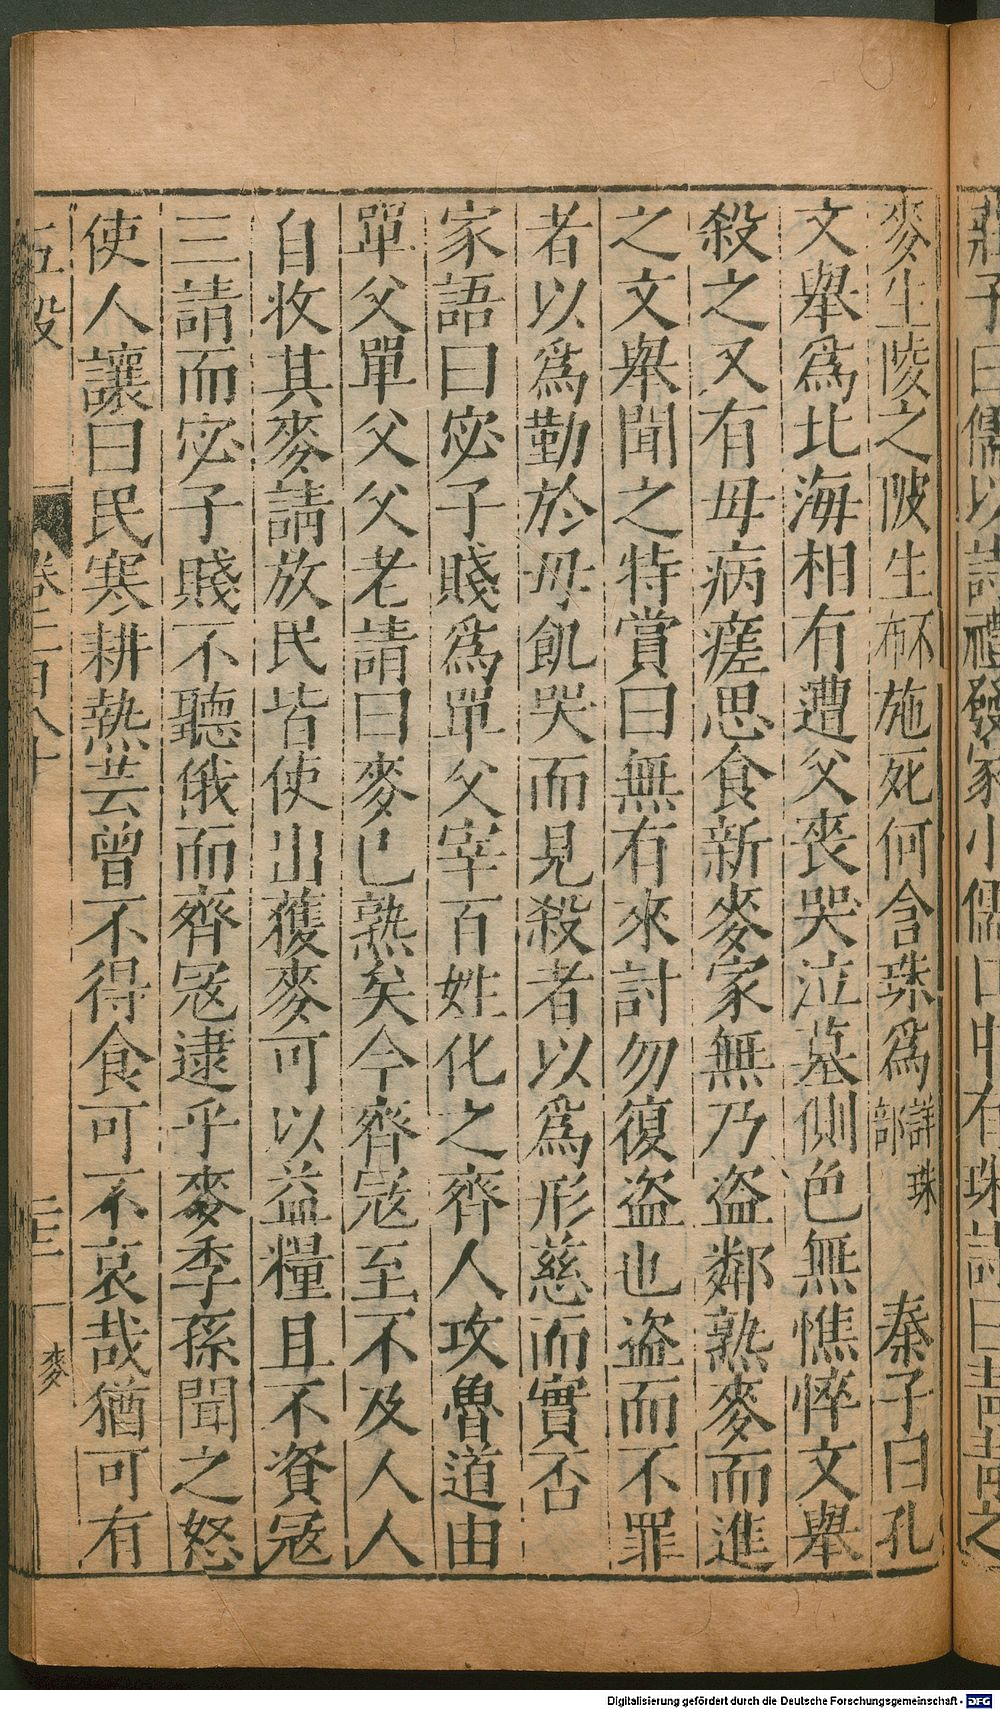 莊子曰儒以詩禮發冢小儒曰口中有珠詩曰青青之
麥生陵之陂生不布施死何含珠爲詳珠部　秦子曰孔
文舉爲北海相有遭父喪哭泣墓側色無憔悴文舉
殺之又有母病瘥思食新麥家無乃盜鄰熟麥而進
之文舉聞之特賞曰無有來討勿復盜也盜而不罪
者以爲勤於母飢哭而見殺者以爲形慈而實否
家語曰宓子賤爲單父宰百姓化之齊人攻魯道由
單父單父父老請曰麥已熟矣今齊寇至不及人人
自收其麥請放民皆使出獲麥可以益糧且不資寇
三請而宓子賤不聽俄而齊寇逮乎麥季孫聞之怒
使人讓曰民寒耕熱芸曾不得食可不哀哉猶可有
五穀　卷三百八十　二三　麥
Digitalisierung gefördert durch die Deutsche Forschungsgemeinschaft - DFG